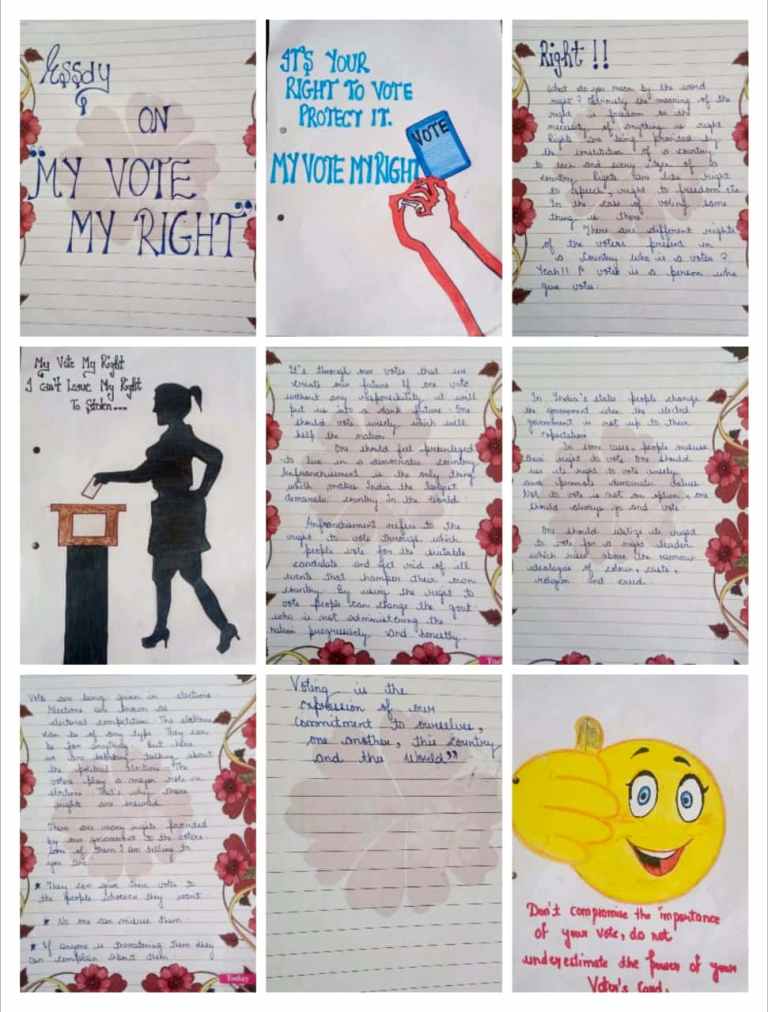 Essay
ON
"MY VOTE
MY RIGHT"
IT'S YOUR
RIGHT TO VOTE
PROTECT IT.
VOTE
MY VOTE MY RIGHT
Right !!
What do you mean by the word
right? Obviously the meaning of the
right is freedom or the
necessity of anything is right
Rights are being provided by
the institution of a country
to each and every of a
country. Rights are like right
to speech, right to freedom etc
In the case of voting same
thing is there
There are different rights
of the voters present in
a country who is a voter?
Yeah!! A voter is a person who
give vote.
My Vote My Right
I can't Leave My Right
To Stolen...
It's through our votes that we
create our future If one vote
without any responsibility it will
put us into a dark future. One
should vote wisely which will
help the nation
One should feel privileged
to live in a democratic country
is the only thing
which makes India the largest
democratic country in the world
refers to the
right to vote through which
people vote for the suitable
candidate and get rid of all
events that hamper their own
country. By using the right to
vote people can change the govt
who is not administering the
nation progressively and honestly.
In India's state people change
the government when the elected
government is not up to their
expectation
In some cases, people misuse
their right to vote One should
use its right to vote wisely
and promote democratic values
Not to vote is not an option, one
should always go and vote
One should utilize its right
to vote for a right leader
which rises above the narrow
ideologies of colour, caste,
religion and creed.
Vote are being given in elections
Elections are known as
electoral competition The elections
can be of any type They can
be for anything. But here
we are talking about
the political elections The
voters play a major role in
elections That's why there
rights are ensured.
There are many rights provided
by our government to the voters
Some of them I am telling to
you are
★ They can give their vote to
the people whoever they want
★ No one can misuse them
★ If anyone is threatening them they
can complain about them
Voting is the
expression of our
commitment to ourselves,
one another, this country
and the World"
Don't compromise the importance
of your vote, do not
underestimate the power of your
Voter's Card.